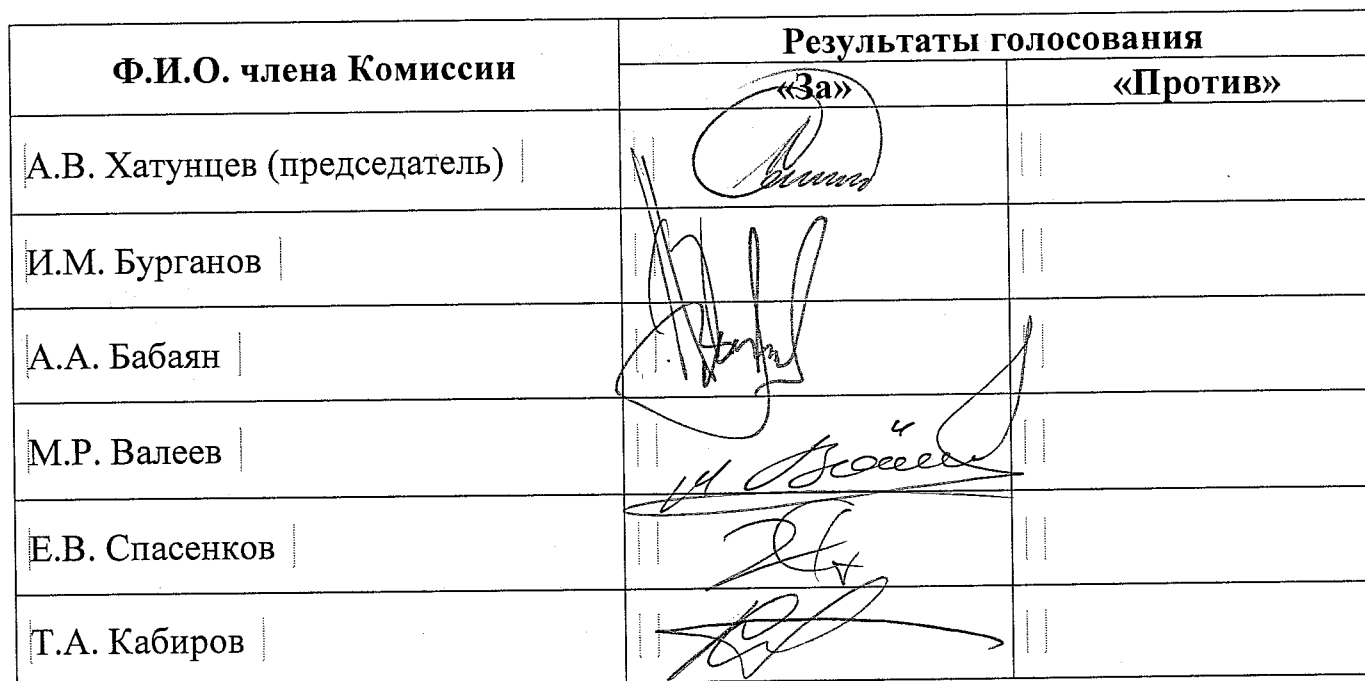 Ф.И.О. члена Комиссии
Результаты голосования
«За»
«Против»
А.В. Хатунцев (председатель)
И.М. Бурганов
А.А. Бабаян
М.Р. Валеев
Е.В. Спасенков
Т.А. Кабиров